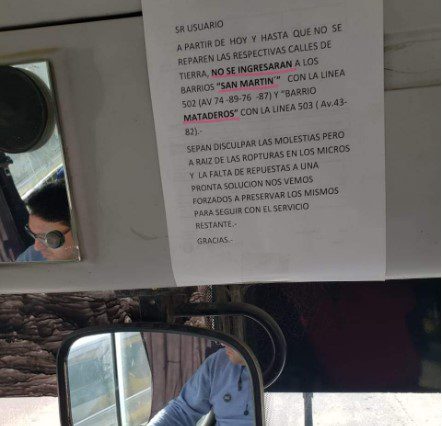 SR USUARIO
A PARTIR DE HOY Y HASTA QUE NO SE
REPAREN LAS RESPECTIVAS CALLES DE
TIERRA, NO SE INGRESARAN A LOS
BARRIOS "SAN MARTIN¨" CON LA LINEA
502 (AV 74 -89-76 -87) Y "BARRIO
MATADEROS" CON LA LINEA 503 ( Av.43-
82).-
SEPAN DISCULPAR LAS MOLESTIAS PERO
A RAIZ DE LAS ROPTURAS EN LOS MICROS
Y LA FALTA DE REPUESTAS A UNA
PRONTA SOLUCION NOS VEMOS
FORZADOS A PRESERVAR LOS MISMOS
PARA SEGUIR CON EL SERVICIO
RESTANTE.-
GRACIAS.-